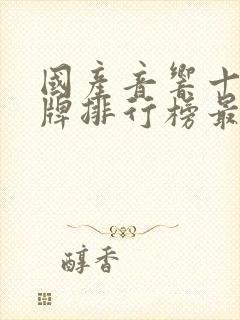 國產音響十
牌排行榜最
醇香